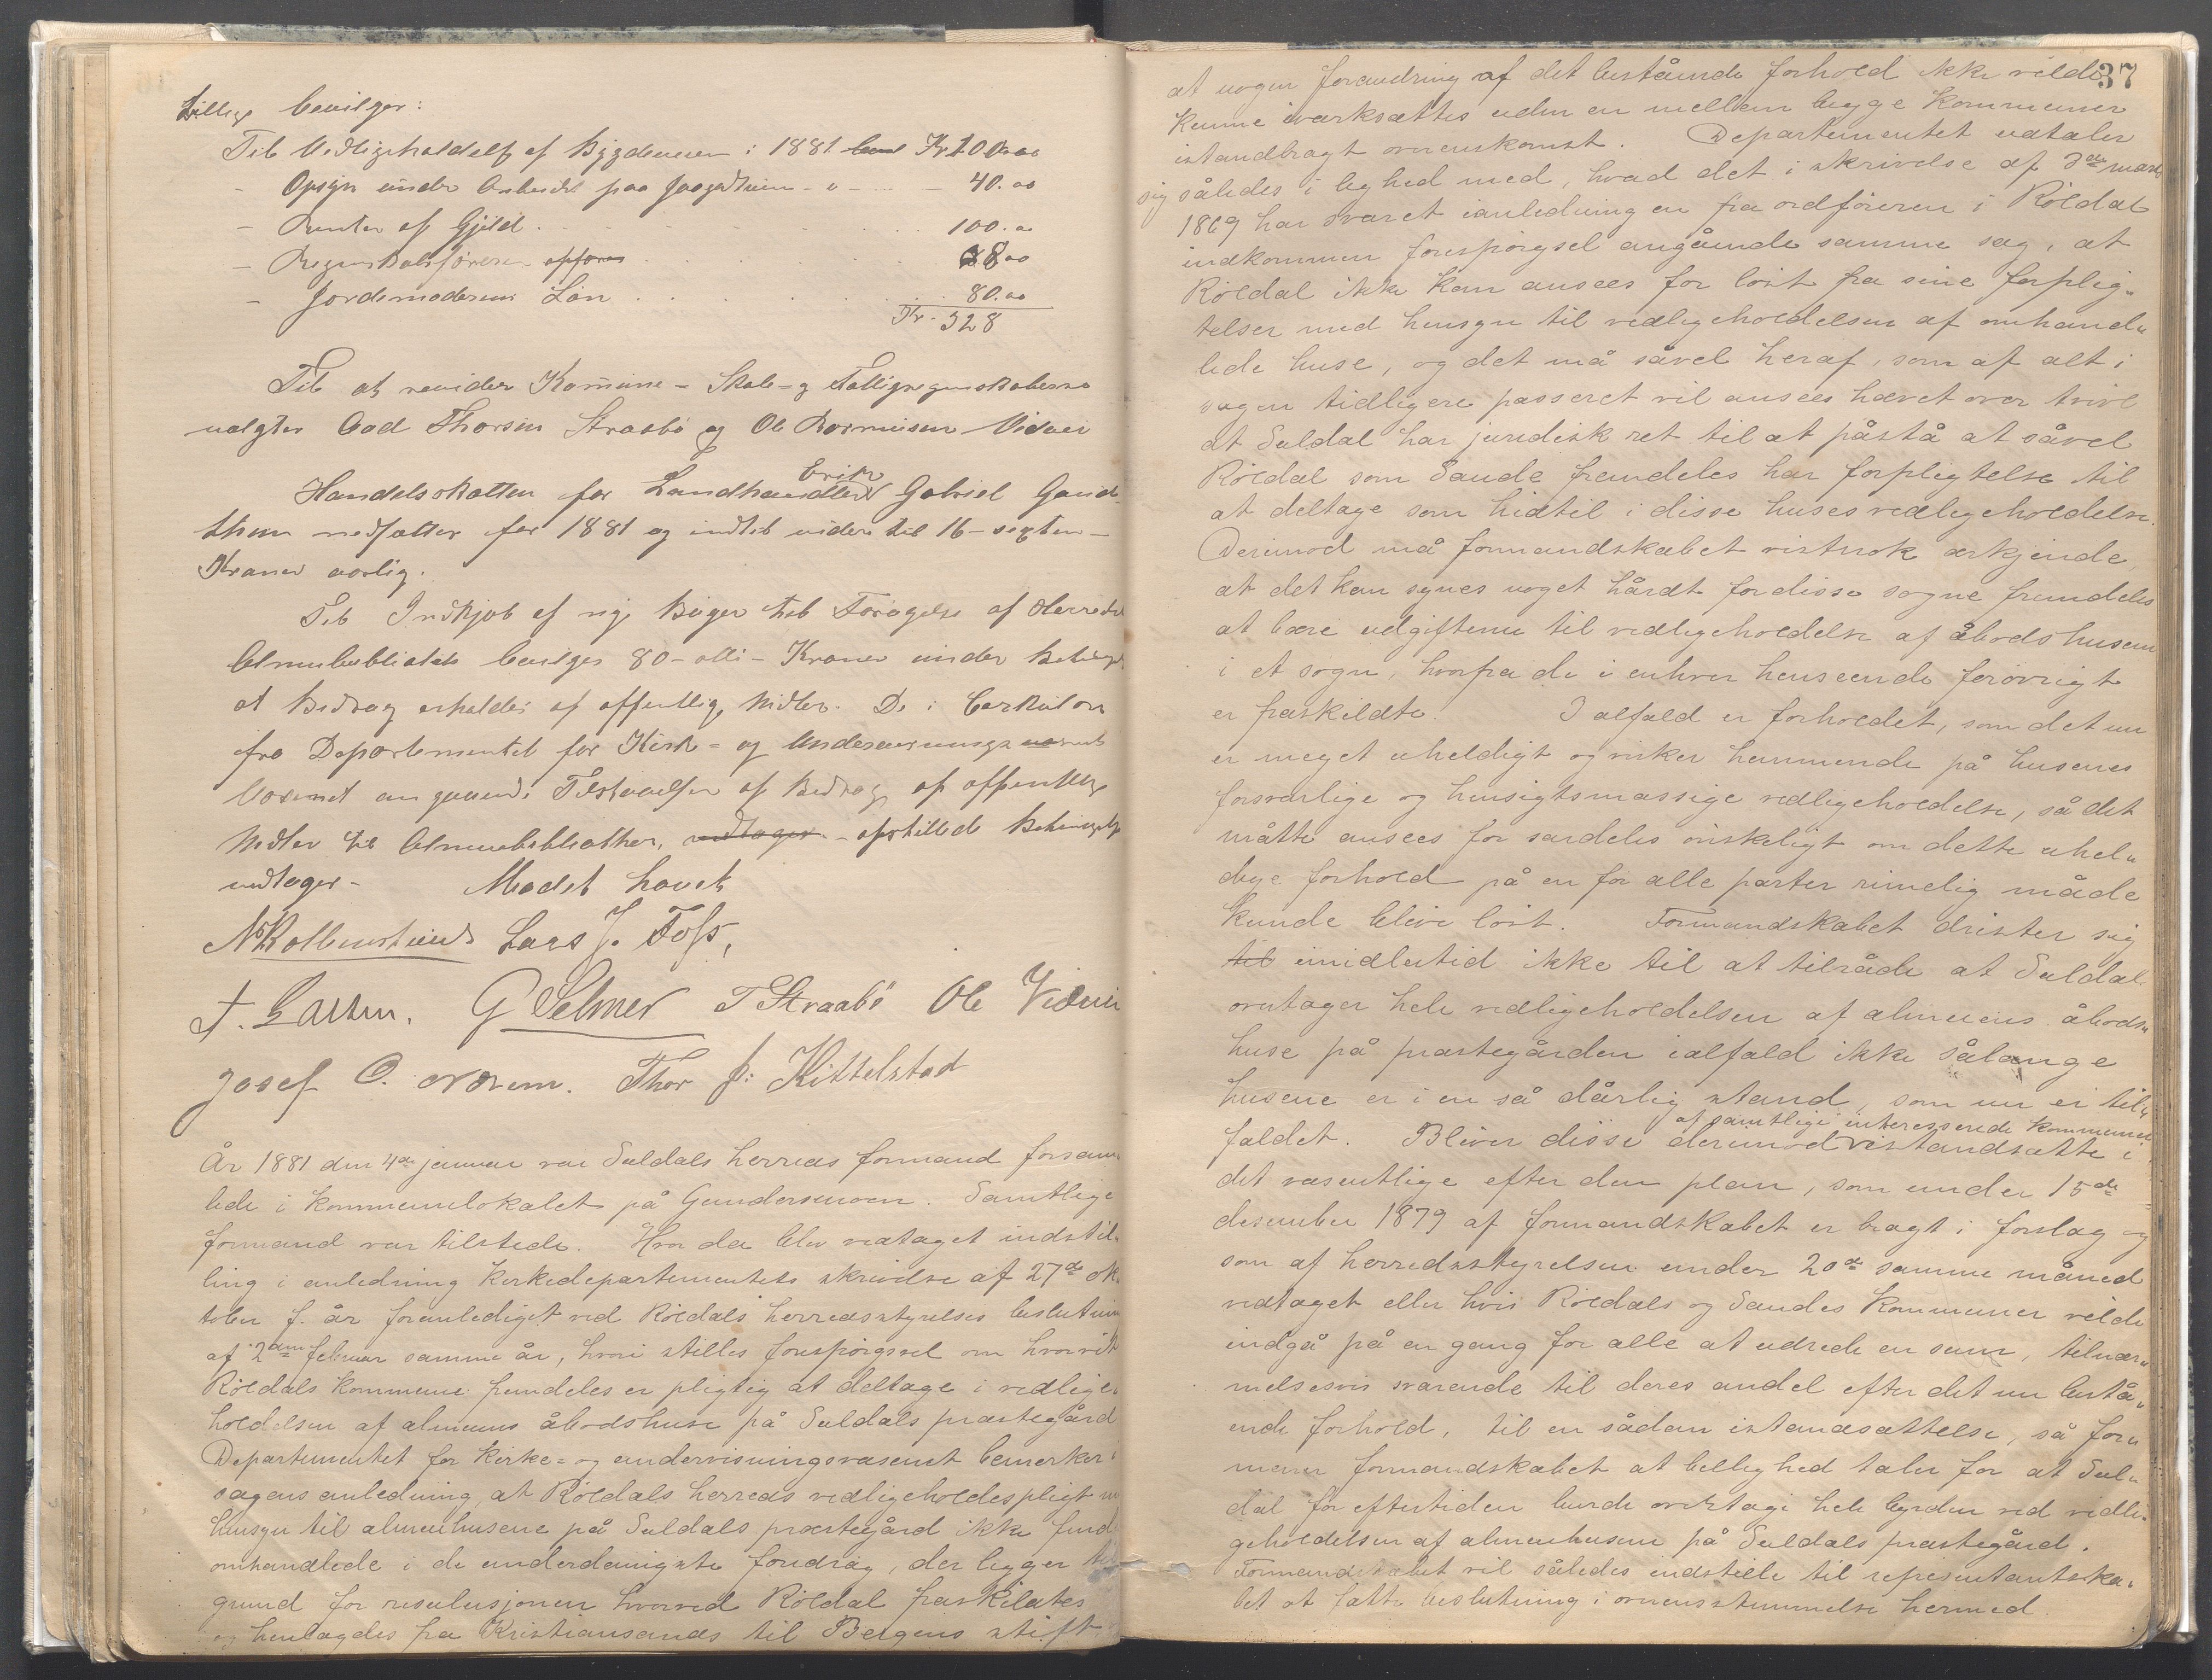 Tillige bevilges:
Til Vedligeholdelse af Bygdeveien i 1881 Kr 100.00
- Opsyn under Arbeidet paa - " - 40.00
- Renter af Gjeld 100.00
- Regnskabsføreren opføres 8.00
- Jordemoderens Løn 80.00
Kr. 328
Til at revidere Kommune- Skole- og Fattigregnskaberne
valgtes Thorsen Straabø og Ole Rasmusen Vidvei
Erik
Handelsskatten for Landhandler Gabriel
nedsættes for 1881 og indtil videre til 16 - sexten -
Kroner aarlig.
Til Indkjøb af nye Bøger til Forøgelse af Herredets
Almuebibliothek bevilges 80 - otti - Kroner under Betingelse
at Bidrag erholdes af offentlige Midler. De i Cirkulære
fra Departementet for Kirke- og Undervisnings
Væsenet angaaende Tilstaaelse af Bidrag af offentlige
Midler til Almuebibliother, vedtages - opstillede Betingelser
vedtages - Mødet hævet
N Kolbenstvedt Lars J. Foss,
T. Larsen. G Selmer T Straabø Ole Vidvei
Josef O. Thor J: Kittelstad
År 1881 den 4de januar var Suldals herreds formænd forsam„
lede i kommunelokalet på Gundersmoen. Samtlige
formænd var tilstede. Hvor da blev vedtaget indstil„
ling i anledning kirkedepartementets skrivelse af 27de ok„
tober f. år foranlediget ved Røldals herredsstyrelses beslutning
af 2den februar samme år, hvori stilles forespørgsel om hvorvidt
Røldals kommune fremdeles er pligtig at deltage i vedlige„
holdelsen af almuens åbodshuse på Suldals præstegård
Departementet for kirke- og undervisningsvæsenet bemerker i
sagens anledning, at Røldals herreds vedligeholdespligt m
hensyn til almuehusene på Suldals præstegård ikke find
omhandlede i de underdanigste foredrag, der ligger til
grund for resolusjonen hvorved Røldal fraskildtes
og henlagdes fra Kristiansands til Bergens stift
37
at nogen forandring af det bestående forhold ikke vilde
kunne iværksættes uden en mellem begge kommuner
istandbragt overenskomst. Departementet udtaler
sig således i lighed med, hvad det i skrivelse af 3die marts
1869 har svaret ianledning en fra ordføreren i Røldal
indkommen forespørgsel angående samme sag, at
Røldal ikke kan ansees for løst fra sine forplig„
telser med hensyn til vedligeholdelsen af omhand„
lede huse, og det må såvel heraf, som af alt i
sagen tidligere passeret vil ansees hævet over tvivl
at Suldal har juridisk ret til at påstå at såvel
Røldal som Sande fremdeles har forpligtelse til
at deltage som hidtil i disse huses vedligeholdelse.
Derimod må formandskabet vistnok erkjende,
at det kan synes noget hårdt for disse sogne fremdeles
at bære udgifterne til vedligeholdelse af åbodshusene
i et sogn, hvorfra de i enhver henseende forøvrigt
er fraskildte. I alfald er forholdet, som det nu
er meget uheldigt og virker hemmende på husenes
forsvarlige og hensigtsmæssige vedligeholdelse, så det
måtte ansees for særdeles ønskeligt om dette uhel„
dige forhold på en for alle parter rimelig måde
kunde blive løst. Formandskabet drister sig
til imidlertid ikke til at tilråde at Suldal
overtager hele vedligeholdelsen af almuens åbods„
huse på præstegården ialfald ikke sålænge
husene er i en så dårlig stand, som nu er til„
af samtlige interesserede kommuner
faldet. Bliver disse derimod istandsætte i
det væsentlige efter den plan, som under 15de
desember 1879 af formandskabet er bragt i forslag og
som af herredsstyrelsen under 20de samme måned
vedtaget eller hvis Røldals og Sandes kommuner vilde
indgå på en gang for alle at udrede en sum, tilnær„
melsesvis svarende til deres andel efter det nu bestå„
ende forhold, til en sådan istandsættelse, så for„
mener formandskabet at billighed taler for at Sul„
dal for eftertiden burde overtage hele byrden ved vedli„
geholdelsen af almuehusene på Suldals præstegård.
Formandskabet vil således indstille til representantska„
bet at fatte beslutning i overensstemmelse hermed.